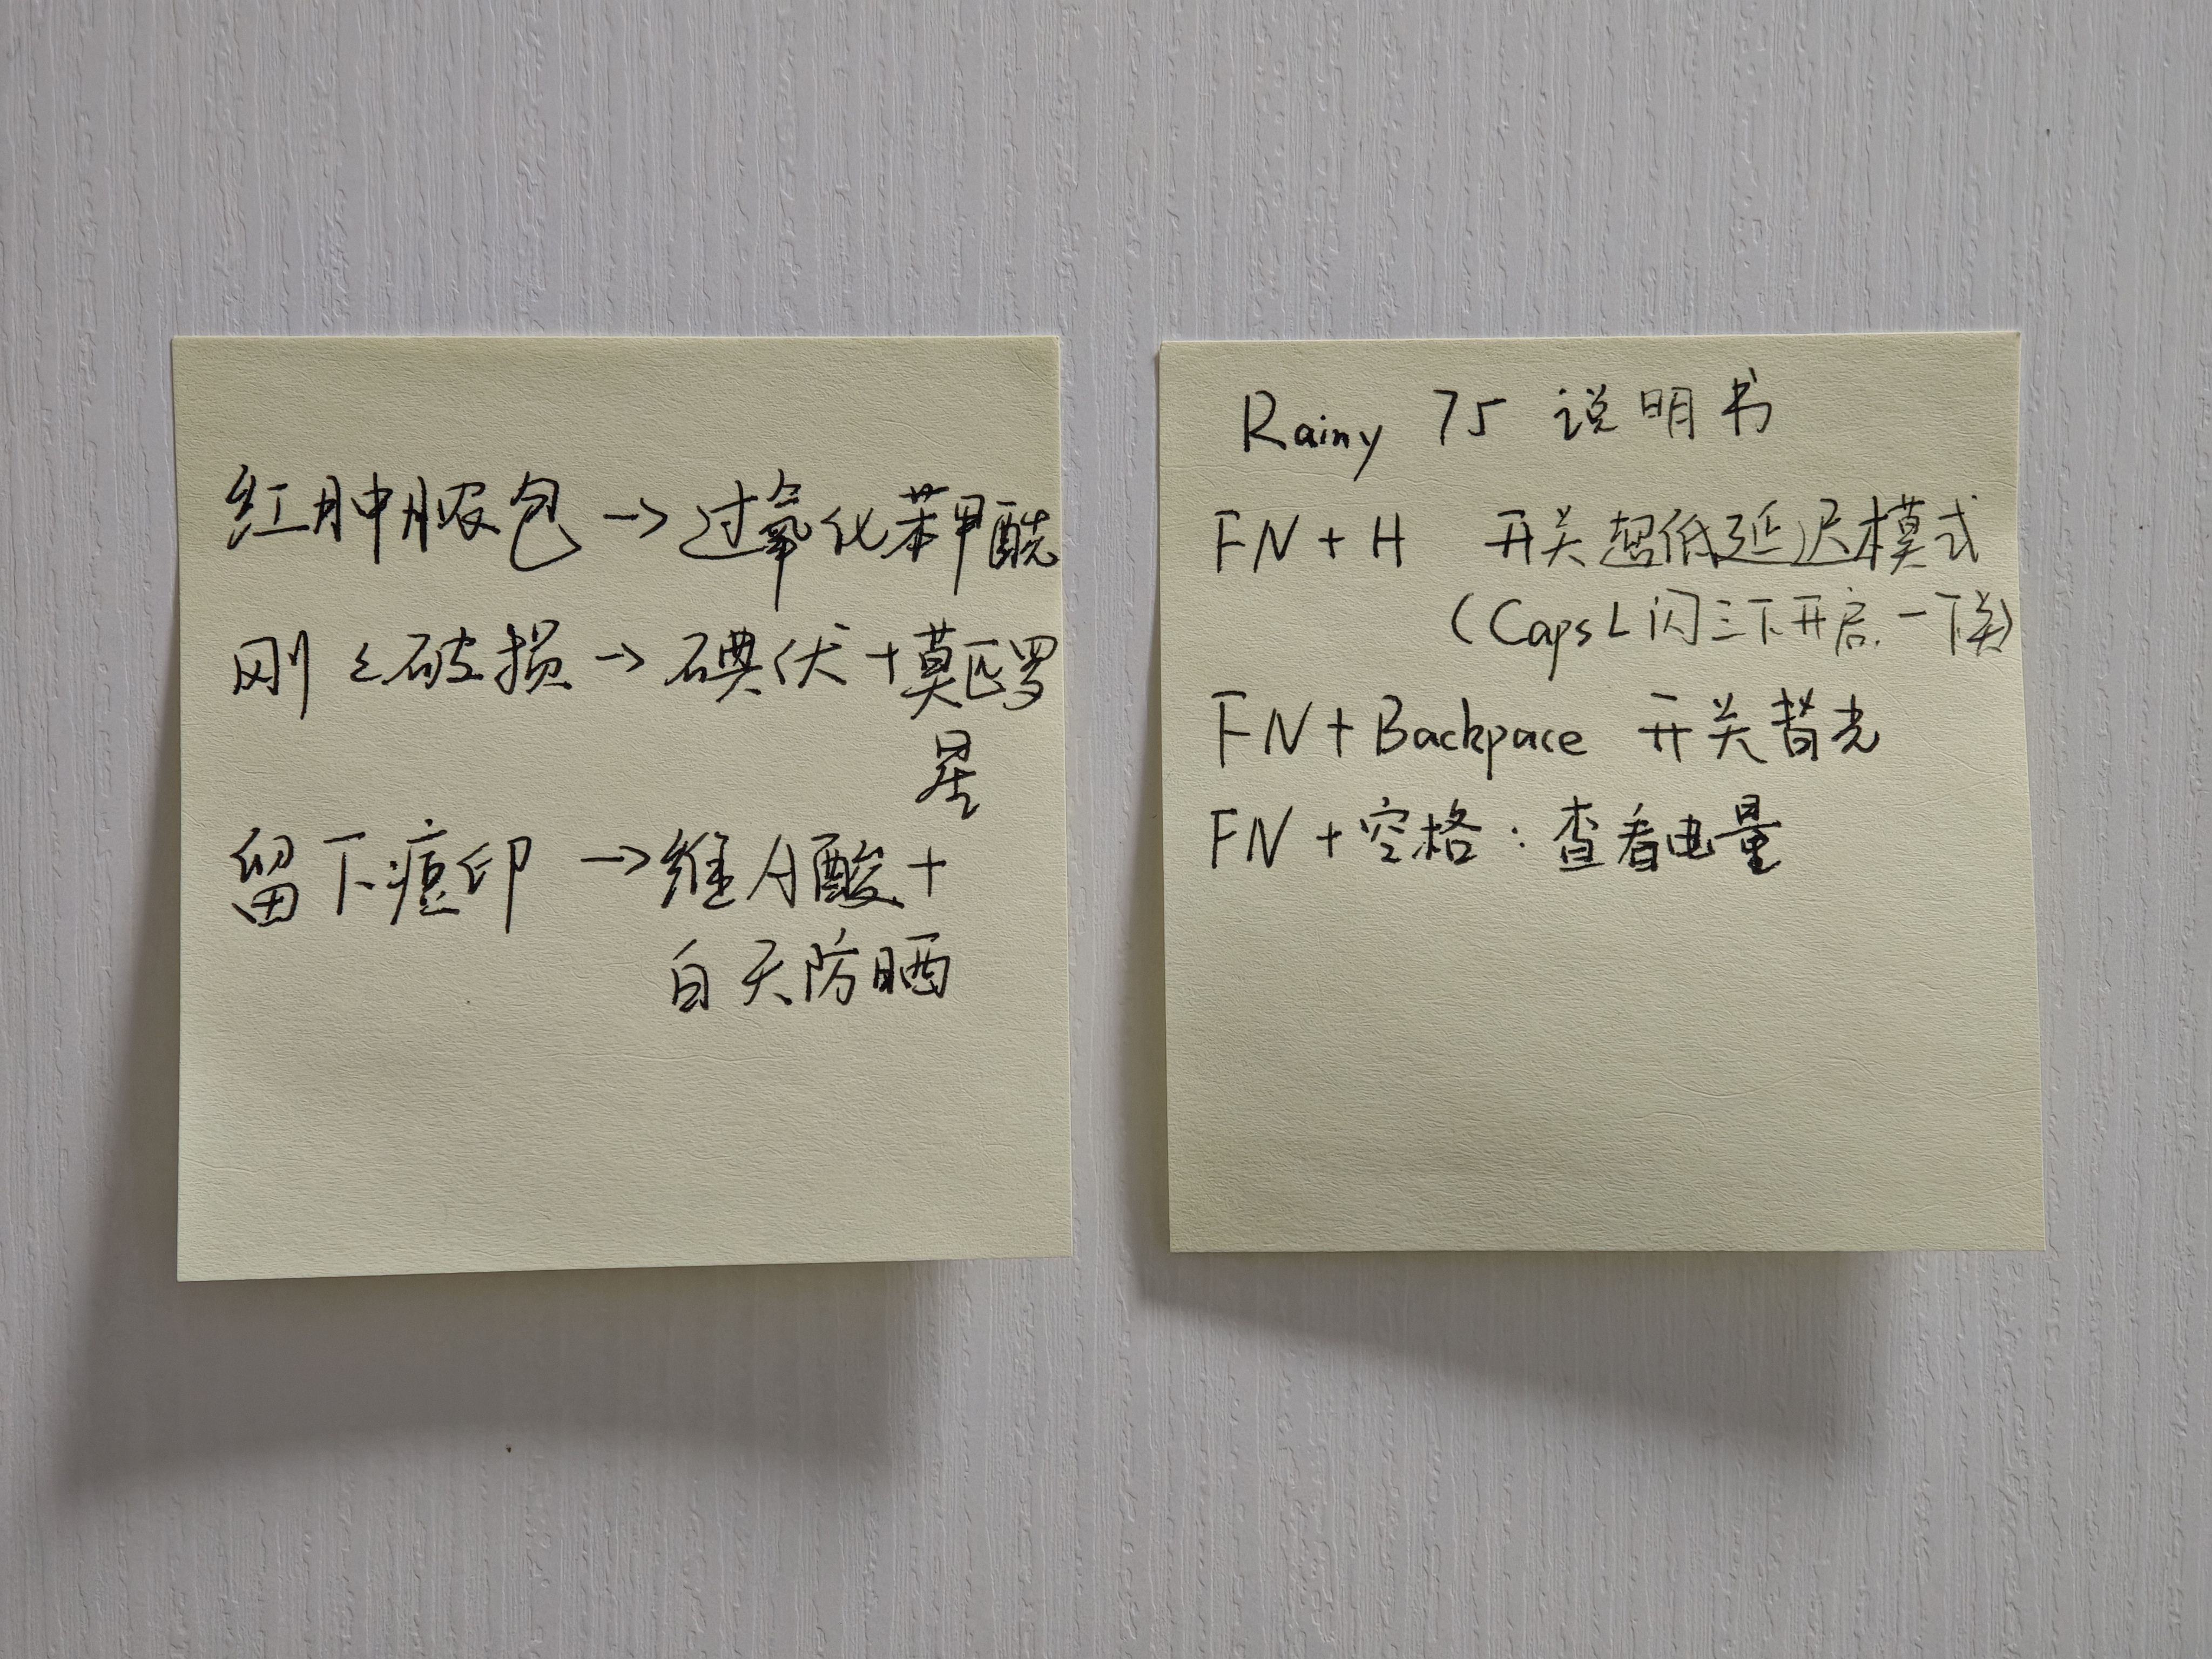 红肿脓包 → 过氧化苯甲酰
刚 破损 → 碘伏 + 莫匹罗
星
留下痘印 → 维A酸 +
白天防晒
Rainy 75 说明书
FN + H 开关超低延迟模式
(Caps L 闪三下开启. 一下关)
FN + Backpace 开关背光
FN + 空格：查看电量